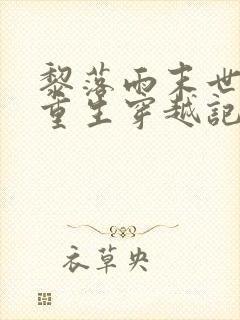 黎落雨末世
重生穿越記
衣草央